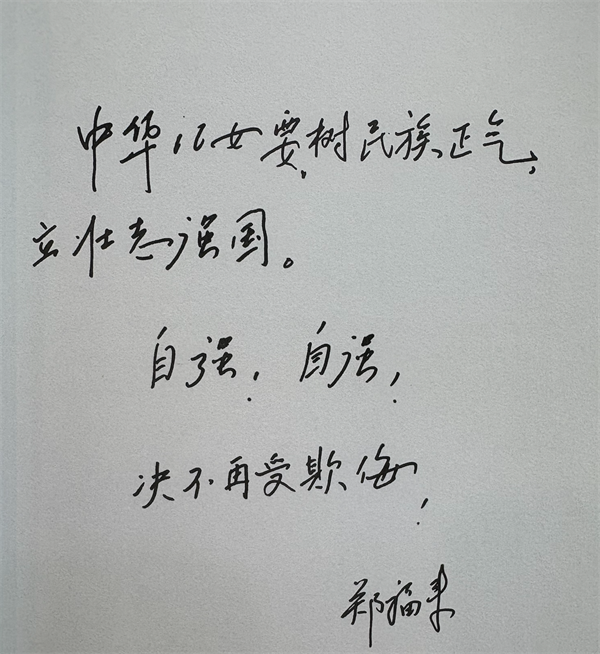 中华儿女要树民族正气，
立壮志强国。
自强！自强！
决不再受欺侮！
郑福来